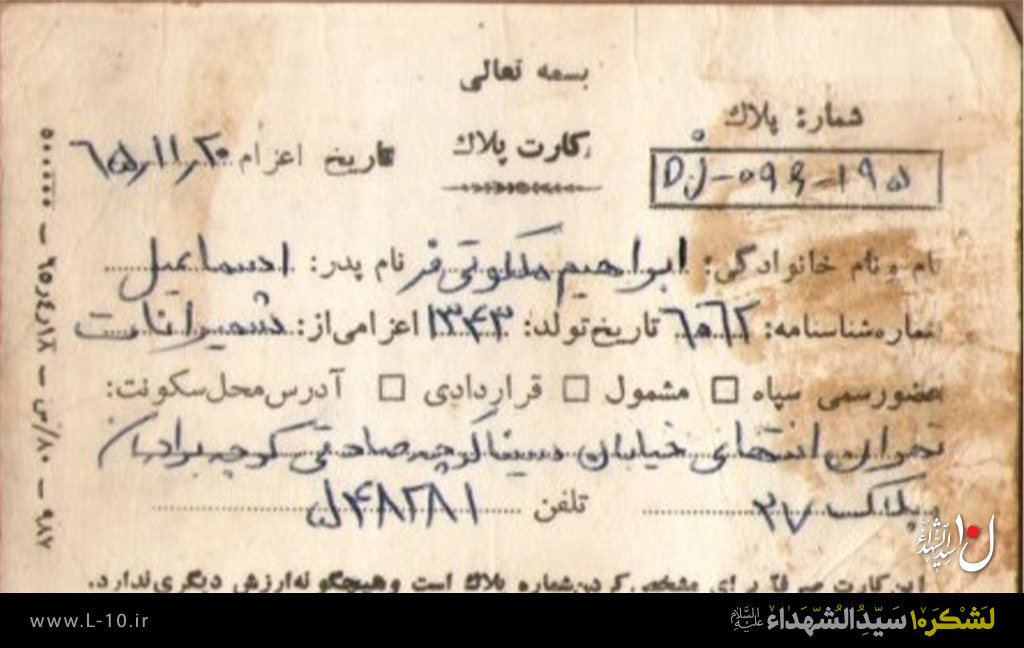 بسمه تعالی
شماره پلاك
کارت پلاك
تاریخ اعزام ۶۵/۱۱/۲۰
DJ-۰۹۶-۱۹۵
نام و نام خانوادگی: ابراهیم ملکوتی فر نام پدر: اسماعیل
شماره شناسنامه: تاریخ تولد: ۱۳۴۳ اعزامی از: شمیرانات
عضو رسمی سپاه □ مشمول □ قراردادی □ آدرس محل سکونت:
تهران انتهای خیابان کوچه صادقی کوچه
پلاک ۲۷ تلفن
این کارت صرفاً برای مشخص کردن شماره پلاك است و هیچگونه ارزش دیگری ندارد.
۵۰۰۰۰۰ – ۶۵ر۴ر۱۸ – ۸۰/ص – ۹۸۷
سیدالشهداء
www.L-10.ir
لشکر۱۰ سیدالشهداء علیه السلام